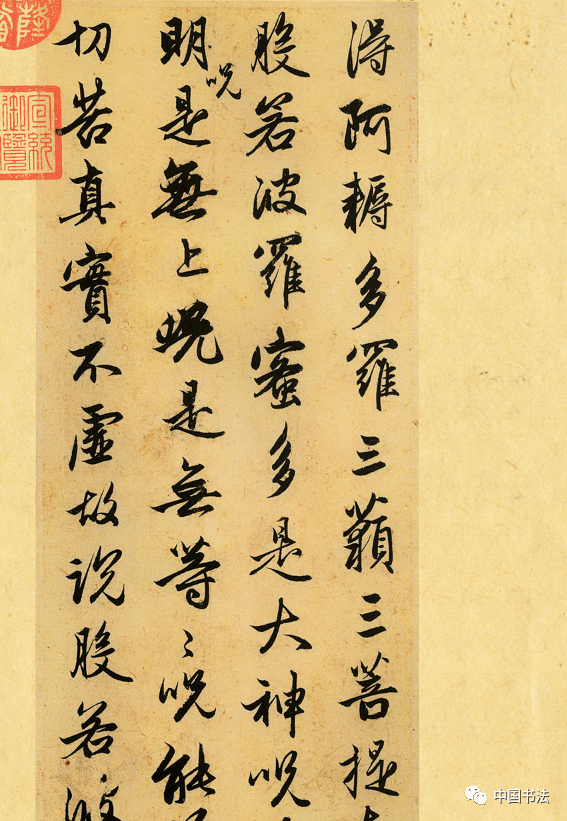 得阿耨多羅三藐三菩提
般若波羅蜜多是大神呪
明呪是無上呪是無等〻呪能
切苦真實不虛故說般若波
宣統
御覽
中国书法